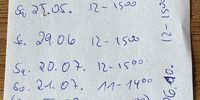 Sa. 25.05. 12-15⁰⁰
Sa. 29.06 12-15⁰⁰
Sa. 20.07. 12-15⁰⁰
So. 21.07. 11-14⁰⁰
12-15⁰⁰
26.10.